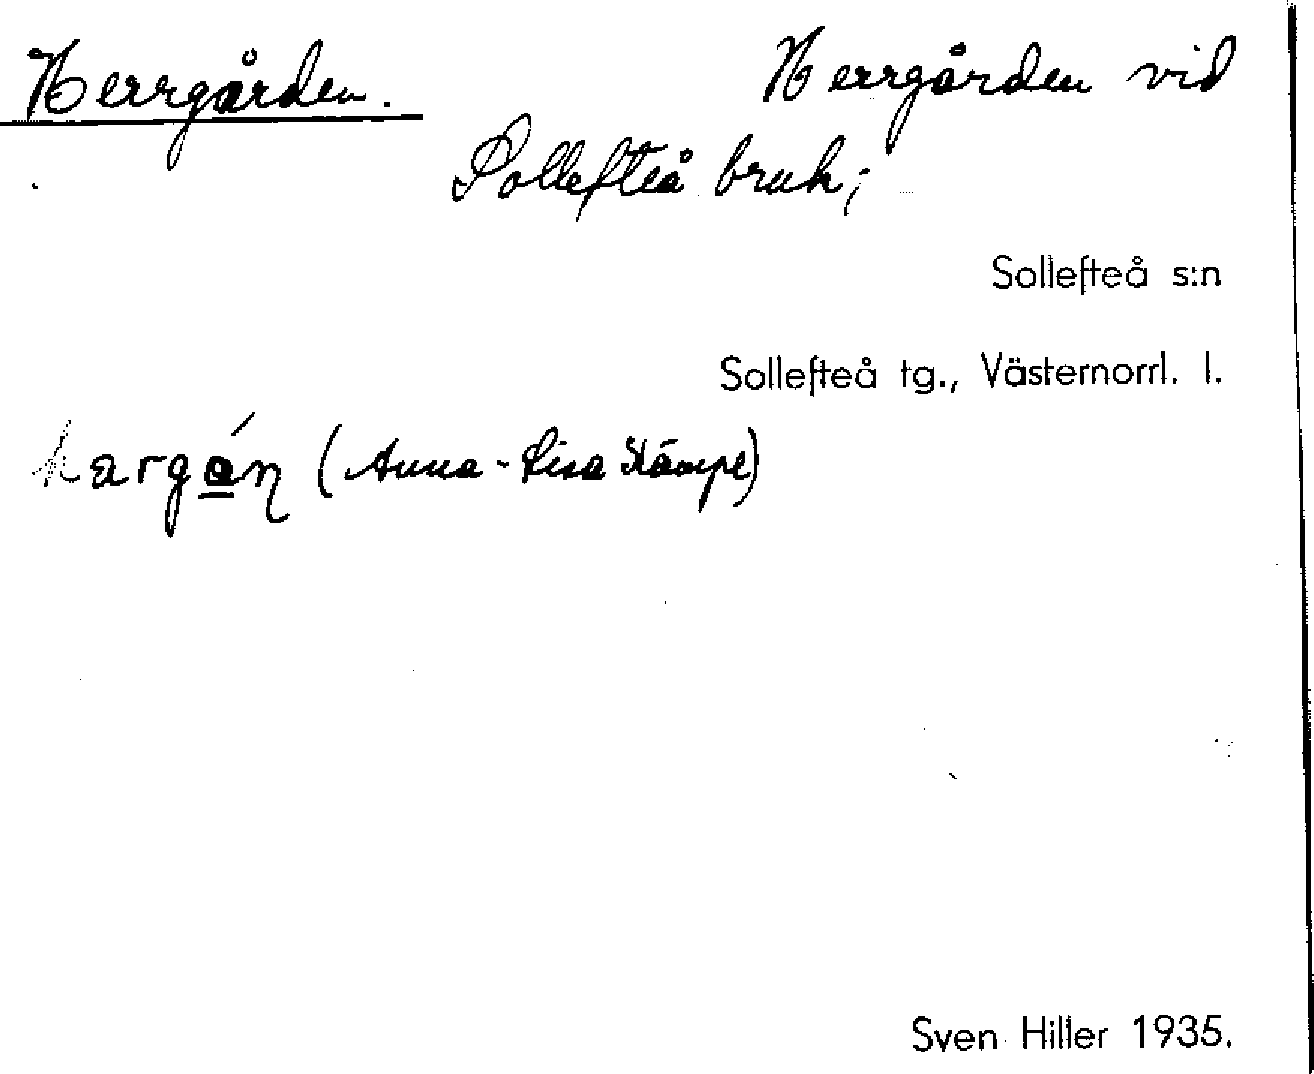 Herrgården. Herrgården vid
Sollefteå bruk;
Sollefteå s:n
Sollefteå tg., Västernorrl. l.
(Anna-Lisa Kämpe)
Sven Hiller 1935.